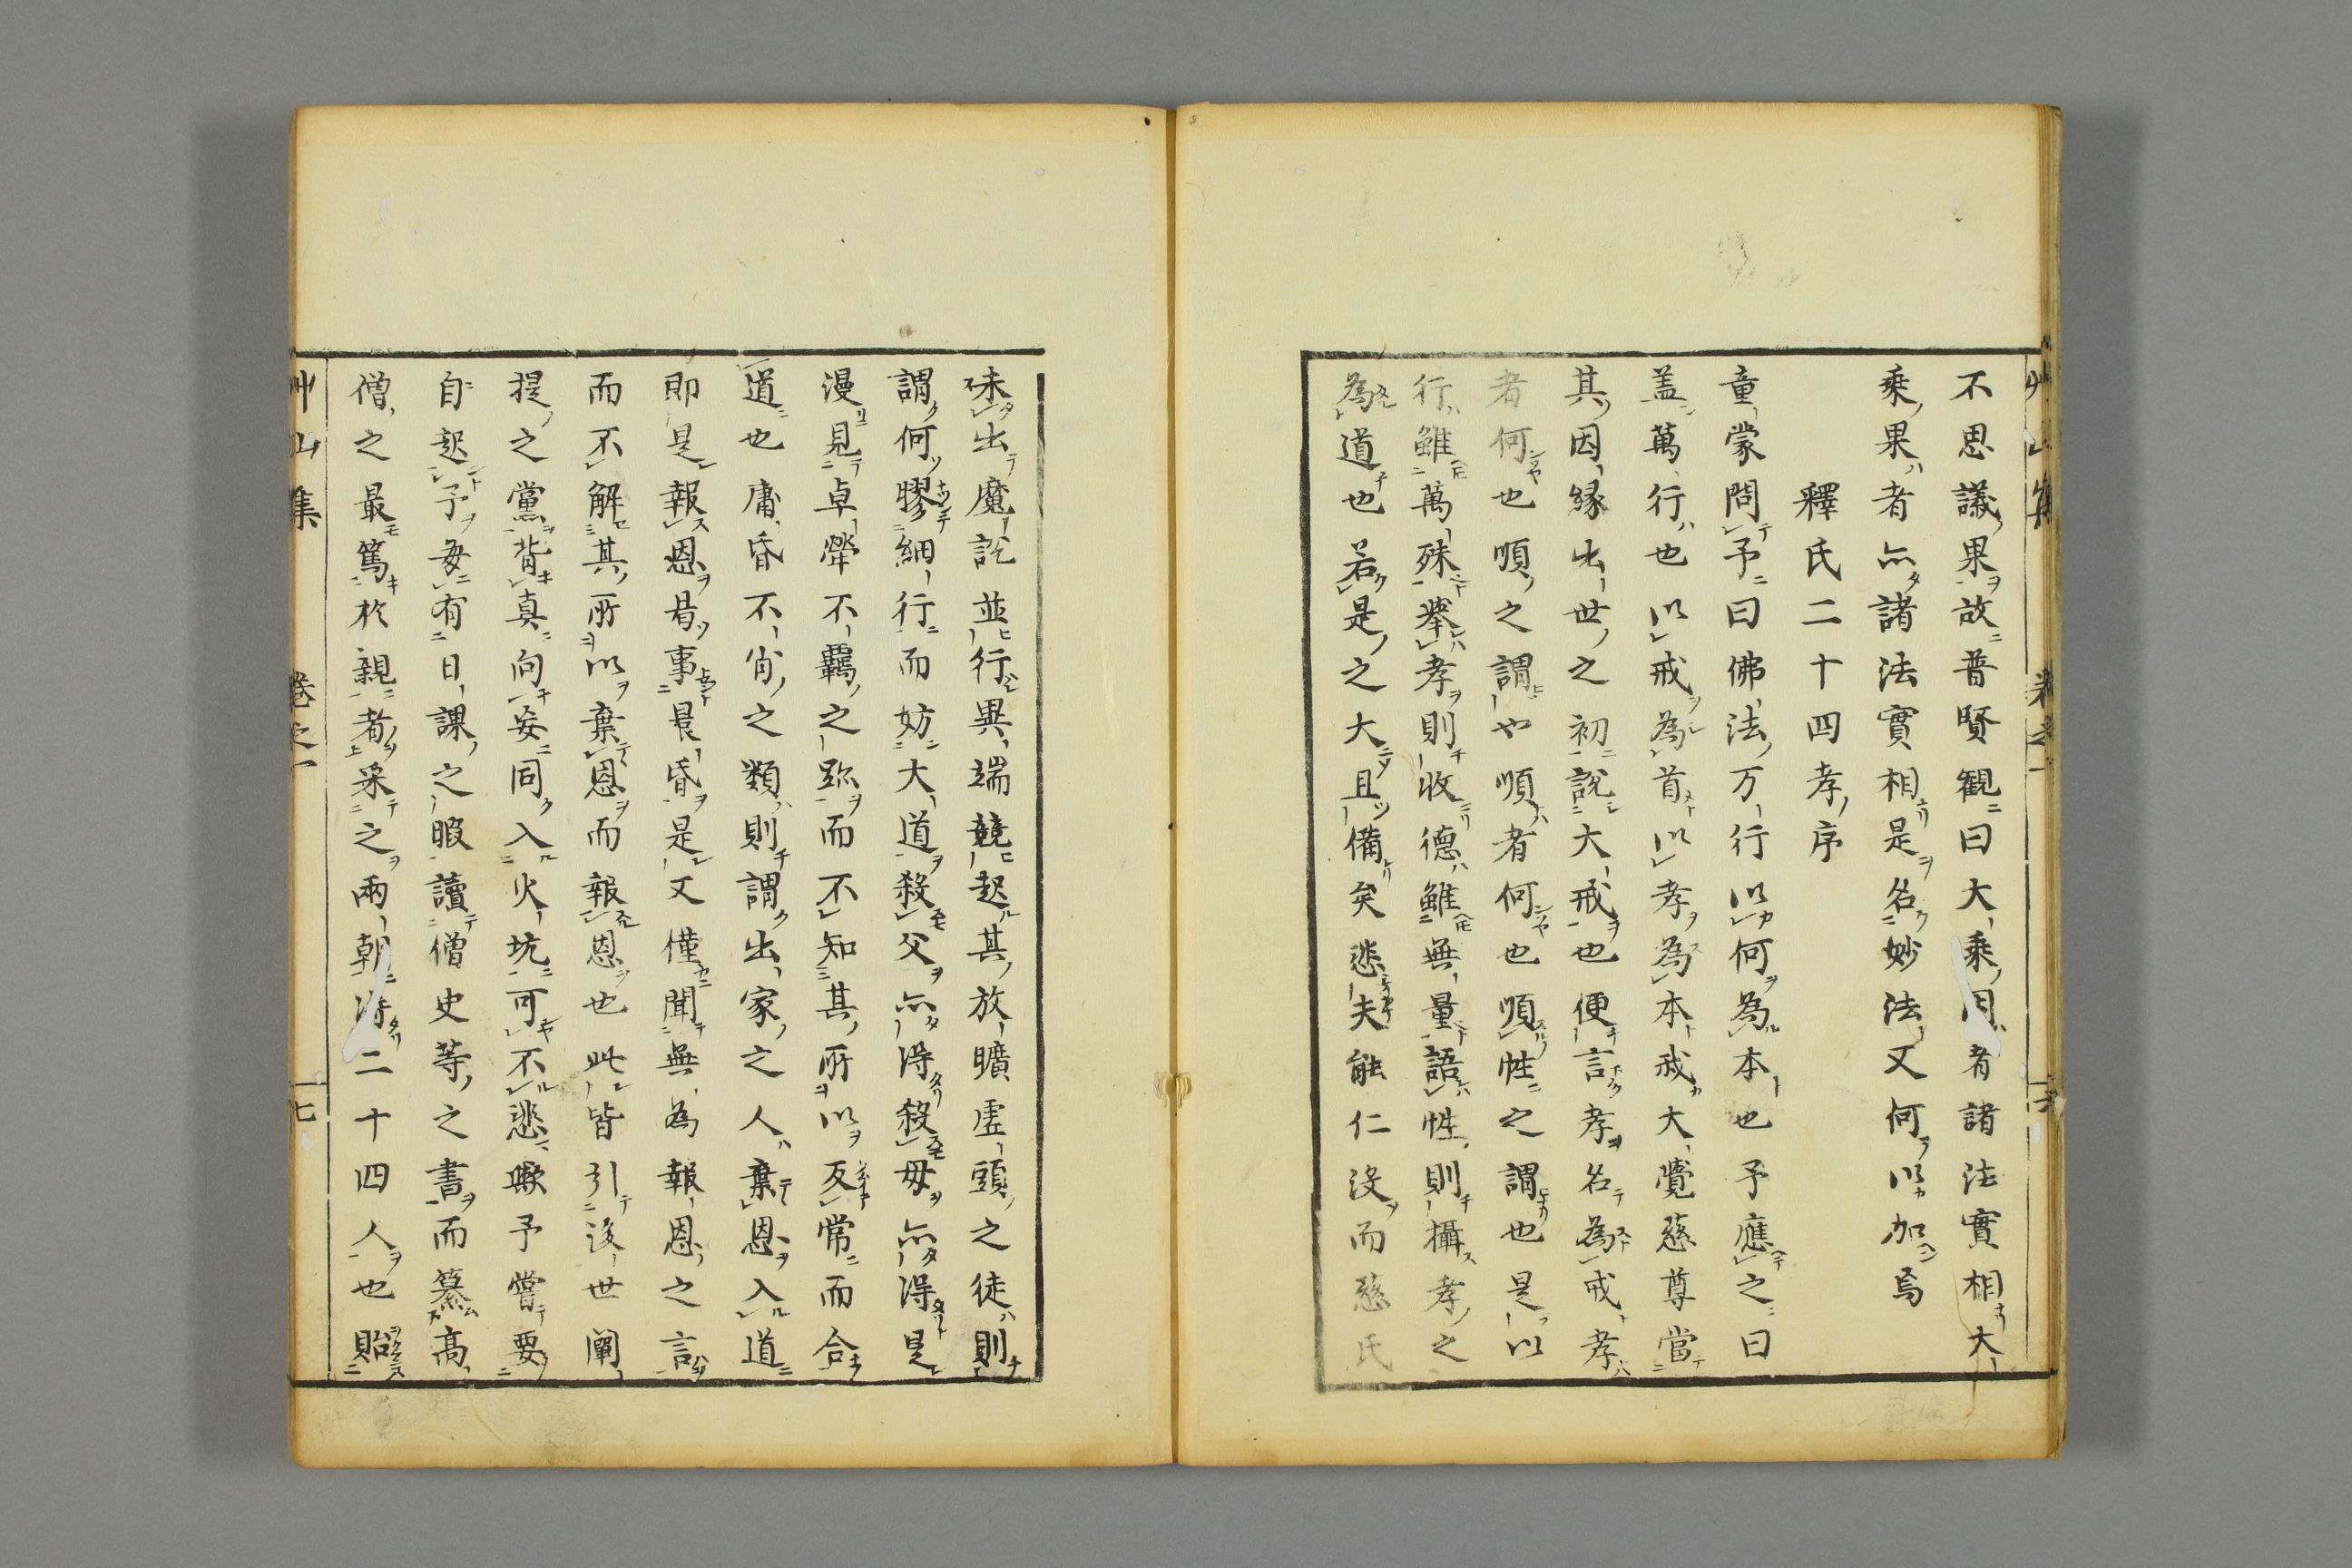 不思議果故普賢観曰大乗因者諸法實相大
乗果者亦諸法實相是名妙法又何以加焉
釋氏二十四孝序
童蒙問予曰佛法万行以何為本也予應之曰
盖萬行也以戒為首以孝為本戒大覺慈尊當
其因縁出世之初説大戒也便言孝名為戒孝
者何也順之謂也順者何也順性之謂也是以
行雖萬殊挙孝則收德雖無量語性則攝孝之
為道也若是之大且備矣逖夫能仁没而慈氏
未出魔説並行異端競起其放曠虚頭之徒則
謂何膠細行而妨大道殺父亦得殺母亦得是
漫見卓犖不羈之跡而不知其所以反常而合
道也庸昏不肖之類則謂出家之人棄恩入道
即是報恩曷事晨昏是又僅聞無為報恩之言
而不解其所以棄恩而報恩也此皆引後世闡
提之黨背真向妄同入火坑可不悲歟予嘗要
自起予毎有日課之暇讀僧史等之書而慕高
僧之最篤於親者采之兩朝得二十四人也貽
艸山集　巻之一　十七